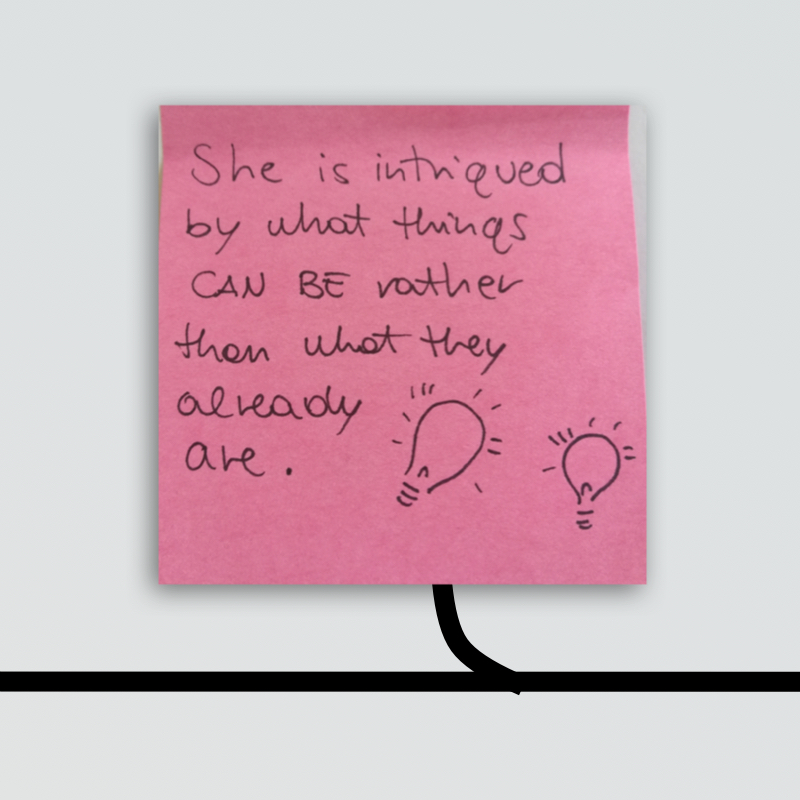 She is intriqued
by what things
CAN BE rather
than what they
already
are.